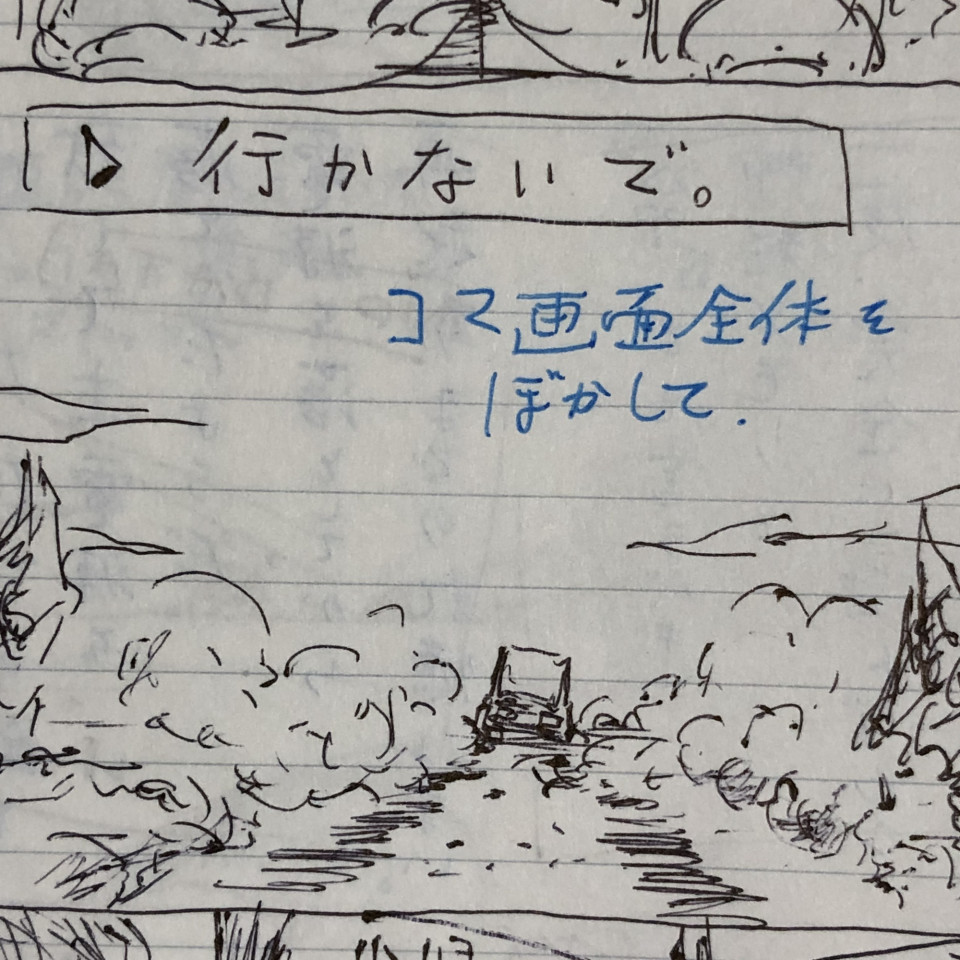 ▷ 行かないで。
コマ画面全体を
ぼかして.